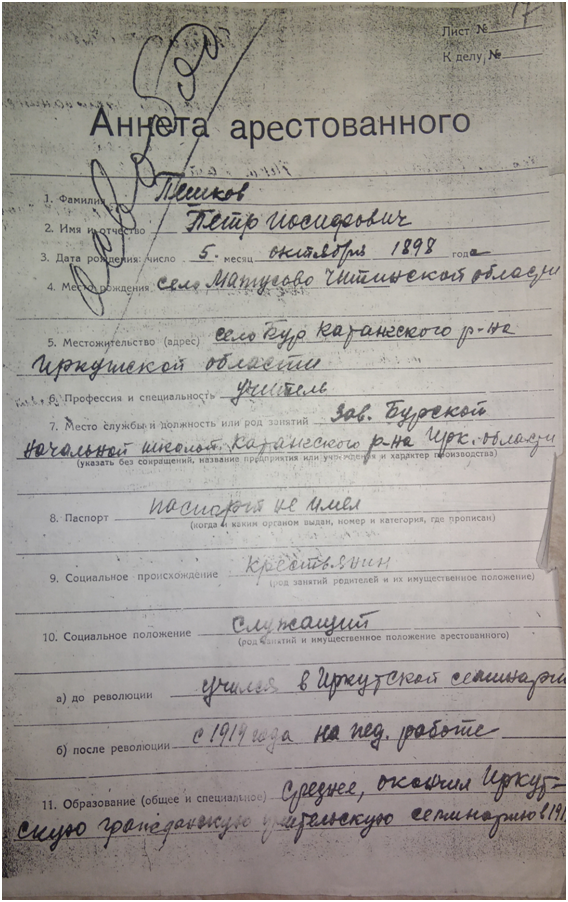 Лист № 17
К делу, №
Анкета арестованного
1. Фамилия Пешков
2. Имя и отчество Петр Иосифович
3. Дата рождения: число 5. месяц октября 1898 года
4. Место рождения село Матусово Читинской области
5. Местожительство (адрес) село Бур Катангского р-на
Иркутской области
6. Профессия и специальность учитель
7. Место службы и должность или род занятий Зав. Бурской
начальной школой. Катангского р-на Ирк. области
(указать без сокращений, название предприятия или учреждения и характер производства)
8. Паспорт паспорт не имел
(когда и каким органом выдан, номер и категория, где прописан)
9. Социальное происхождение крестьянин
(род занятий родителей и их имущественное положение)
10. Социальное положение служащий
(род занятий и имущественное положение арестованного)
а) до революции учился в Иркутской семинарии
б) после революции с 1919 года на пед. работе
11. Образование (общее и специальное) среднее, окончил Иркут-
скую гражданскую учительскую семинарию в 191